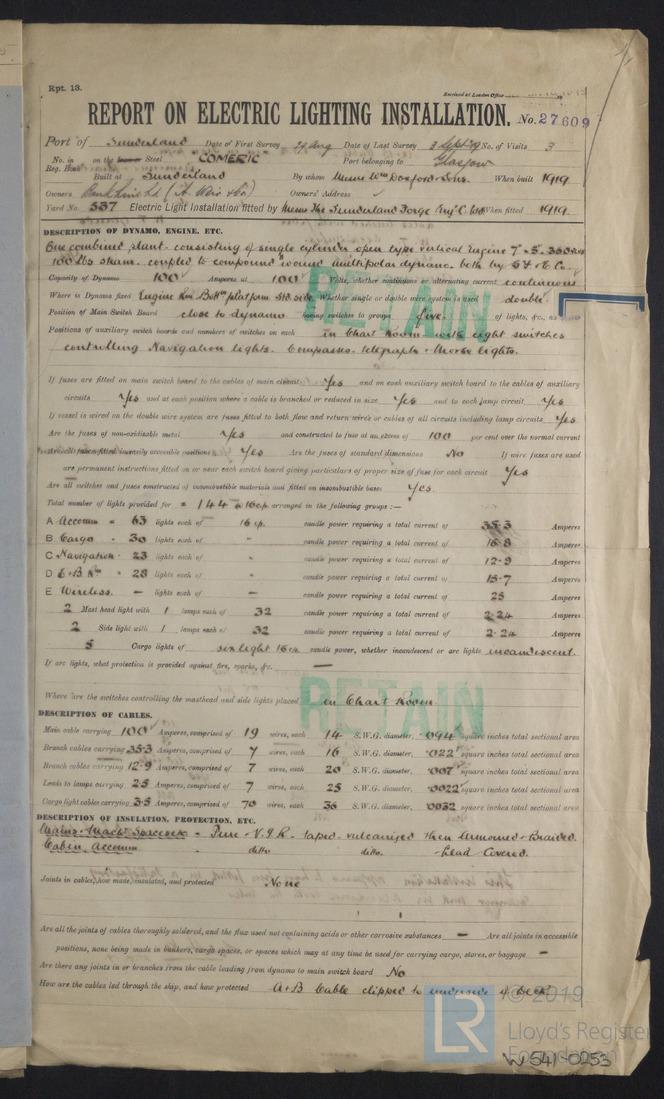 Rpt. 13.
Received at London Office
REPORT ON ELECTRIC LIGHTING INSTALLATION. No. 27609
Port of Sunderland Date of First Survey 29 Aug Date of Last Survey 3 Sept 19 No. of Visits 3
No. in Reg. Book on the Iron or Steel COMERIC Port belonging to Glasgow
Built at Sunderland By whom Messrs Wm Doxford & Sons. When built 1919
Owners Owners' Address
Yard No. 537 Electric Light Installation fitted by Messrs The Sunderland Forge Eng. C. Ltd When fitted 1919.
DESCRIPTION OF DYNAMO, ENGINE, ETC.
One combined plant consisting of single cylinder open type vertical Engine 7" - 5"
100 lbs steam. coupled to compound wound multipolar dynamo. both by S F & E Co.
Capacity of Dynamo 100 Amperes at 100 Volts, whether continuous or alternating current continuous
Where is Dynamo fixed Engine Rm Bottm platform Std side Whether single or double wire system is used double
Position of Main Switch Board close to dynamo having switches to groups five of lights, &c., as
Positions of auxiliary switch boards and numbers of switches on each in Chart Room with eight switches
controlling Navigation lights. Compasses. telegraphs & Morse lights.
If fuses are fitted on main switch board to the cables of main circuit Yes and on each auxiliary switch board to the cables of auxiliary
circuits Yes and at each position where a cable is branched or reduced in size Yes and to each lamp circuit Yes
If vessel is wired on the double wire system are fuses fitted to both flow and return wires or cables of all circuits including lamp circuits Yes
Are the fuses of non-oxidizable metal Yes and constructed to fuse at an excess of 100 per cent over the normal current
Are all fuses fitted in easily accessible positions Yes Are the fuses of standard dimensions No If wire fuses are used
are permanent instructions fitted on or near each switch board giving particulars of proper size of fuse for each circuit Yes
Are all switches and fuses constructed of incombustible materials and fitted on incombustible bases Yes
Total number of lights provided for = 144 = 16 cp. arranged in the following groups :—
A Accomm = 63 lights each of 16 cp. candle power requiring a total current of 35.3 Amperes
B Cargo - 30 lights each of " candle power requiring a total current of 16.8 Amperes
C Navigation - 23 lights each of " candle power requiring a total current of 12.9 Amperes
D E & B Rm - 28 lights each of " candle power requiring a total current of 15.7 Amperes
E Wireless. — lights each of — candle power requiring a total current of 25 Amperes
2 Mast head light with 1 lamps each of 32 candle power requiring a total current of 2.24 Amperes
2 Side light with 1 lamps each of 32 candle power requiring a total current of 2.24 Amperes
5 Cargo lights of six light 16 cp candle power, whether incandescent or arc lights incandescent.
If arc lights, what protection is provided against fire, sparks, &c. —
Where are the switches controlling the masthead and side lights placed in Chart Room
RETAIN
RETAIN
DESCRIPTION OF CABLES.
Main cable carrying 100 Amperes, comprised of 19 wires, each 14 S.W.G. diameter, .094 square inches total sectional area
Branch cables carrying 35.3 Amperes, comprised of 7 wires, each 16 S.W.G. diameter, .022 square inches total sectional area
Branch cables carrying 12.9 Amperes, comprised of 7 wires, each 20 S.W.G. diameter, .007 square inches total sectional area
Leads to lamps carrying 2.5 Amperes, comprised of 7 wires, each 25 S.W.G. diameter, .0022 square inches total sectional area
Cargo light cables carrying 3.5 Amperes, comprised of 70 wires, each 36 S.W.G. diameter, .0032 square inches total sectional area
DESCRIPTION OF INSULATION, PROTECTION, ETC.
Mains. Machy Spaces - Pure & V.I.R. taped. vulcanized then Armoured & Braided.
Cabin, Accomm. ditto ditto. Lead Covered.
Joints in cables, how made, insulated, and protected None
Are all the joints of cables thoroughly soldered, and the flux used not containing acids or other corrosive substances — Are all joints in accessible
positions, none being made in bunkers, cargo spaces, or spaces which may at any time be used for carrying cargo, stores, or baggage —
Are there any joints in or branches from the cable leading from dynamo to main switch board No
How are the cables led through the ship, and how protected A & B Cable clipped to underside of Deck
© 2019
LR
Lloyd's Register
Foundation
W541-0253